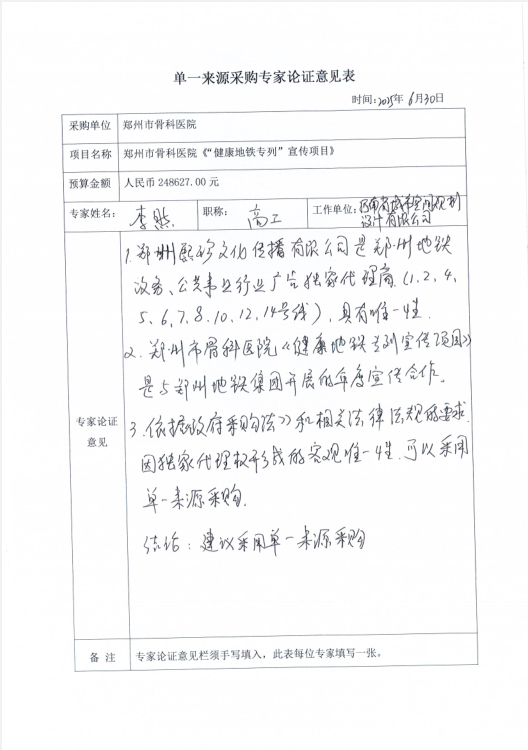 单一来源采购专家论证意见表
时间:2025年6月30日
采购单位 郑州市骨科医院
项目名称 郑州市骨科医院《“健康地铁专列”宣传项目》
预算金额 人民币 248627.00 元
专家姓名: 李然 职称: 高工 工作单位: 河南省城市空间规划
设计有限公司
1.郑州熙珍文化传播有限公司是郑州地铁
政务、公共事业行业广告独家代理商(1、2、4、
5、6、7、8、10、12、14号线),具有唯一性.
2、郑州市骨科医院《健康地铁专列宣传项目》
是与郑州地铁集团开展的年度宣传合作。
专家论证
意见
3.依据政府采购法》和相关法律法规的要求
因独家代理权形成的客观唯一性,可以采用
单一来源采购.
结论:建议采用单一来源采购
备 注 专家论证意见栏须手写填入,此表每位专家填写一张。